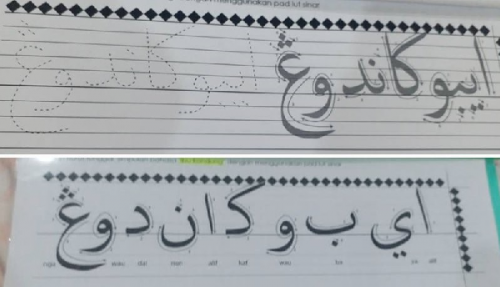 menggunakan pad lut sinar
ايبو كاندوڠ ايبو كاندوڠ
ibu kandung dengan menggunakan pad lut sinar
اي ب و كا ن د و ڠ
nga wau dal nun alif kaf wau ba ya alif